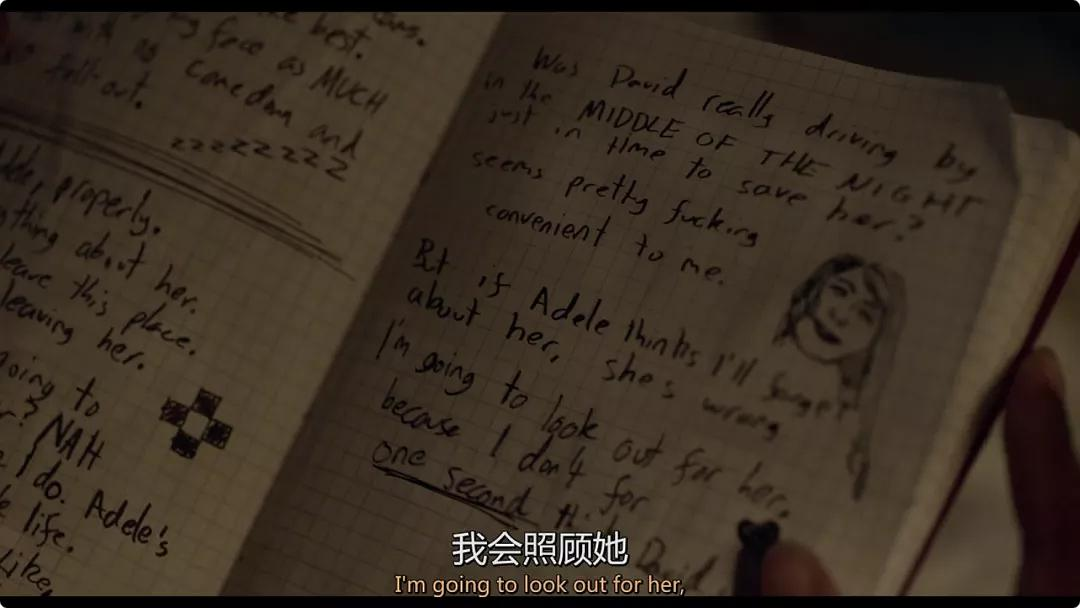 best.
face as MUCH
comedown and
fall-out.
zzzzzzzz
properly.
about her.
leave this place.
leaving her.
going to
NAH
I do. Adele's
life.
Like,
Was David really driving by
in the MIDDLE OF THE NIGHT
just in time to save her?
seems pretty fucking
convenient to me.
But if Adele thinks I'll forget
about her, she's wrong
I'm going to look out for her.
because I don't for
one second
David
我会照顾她
I'm going to look out for her,